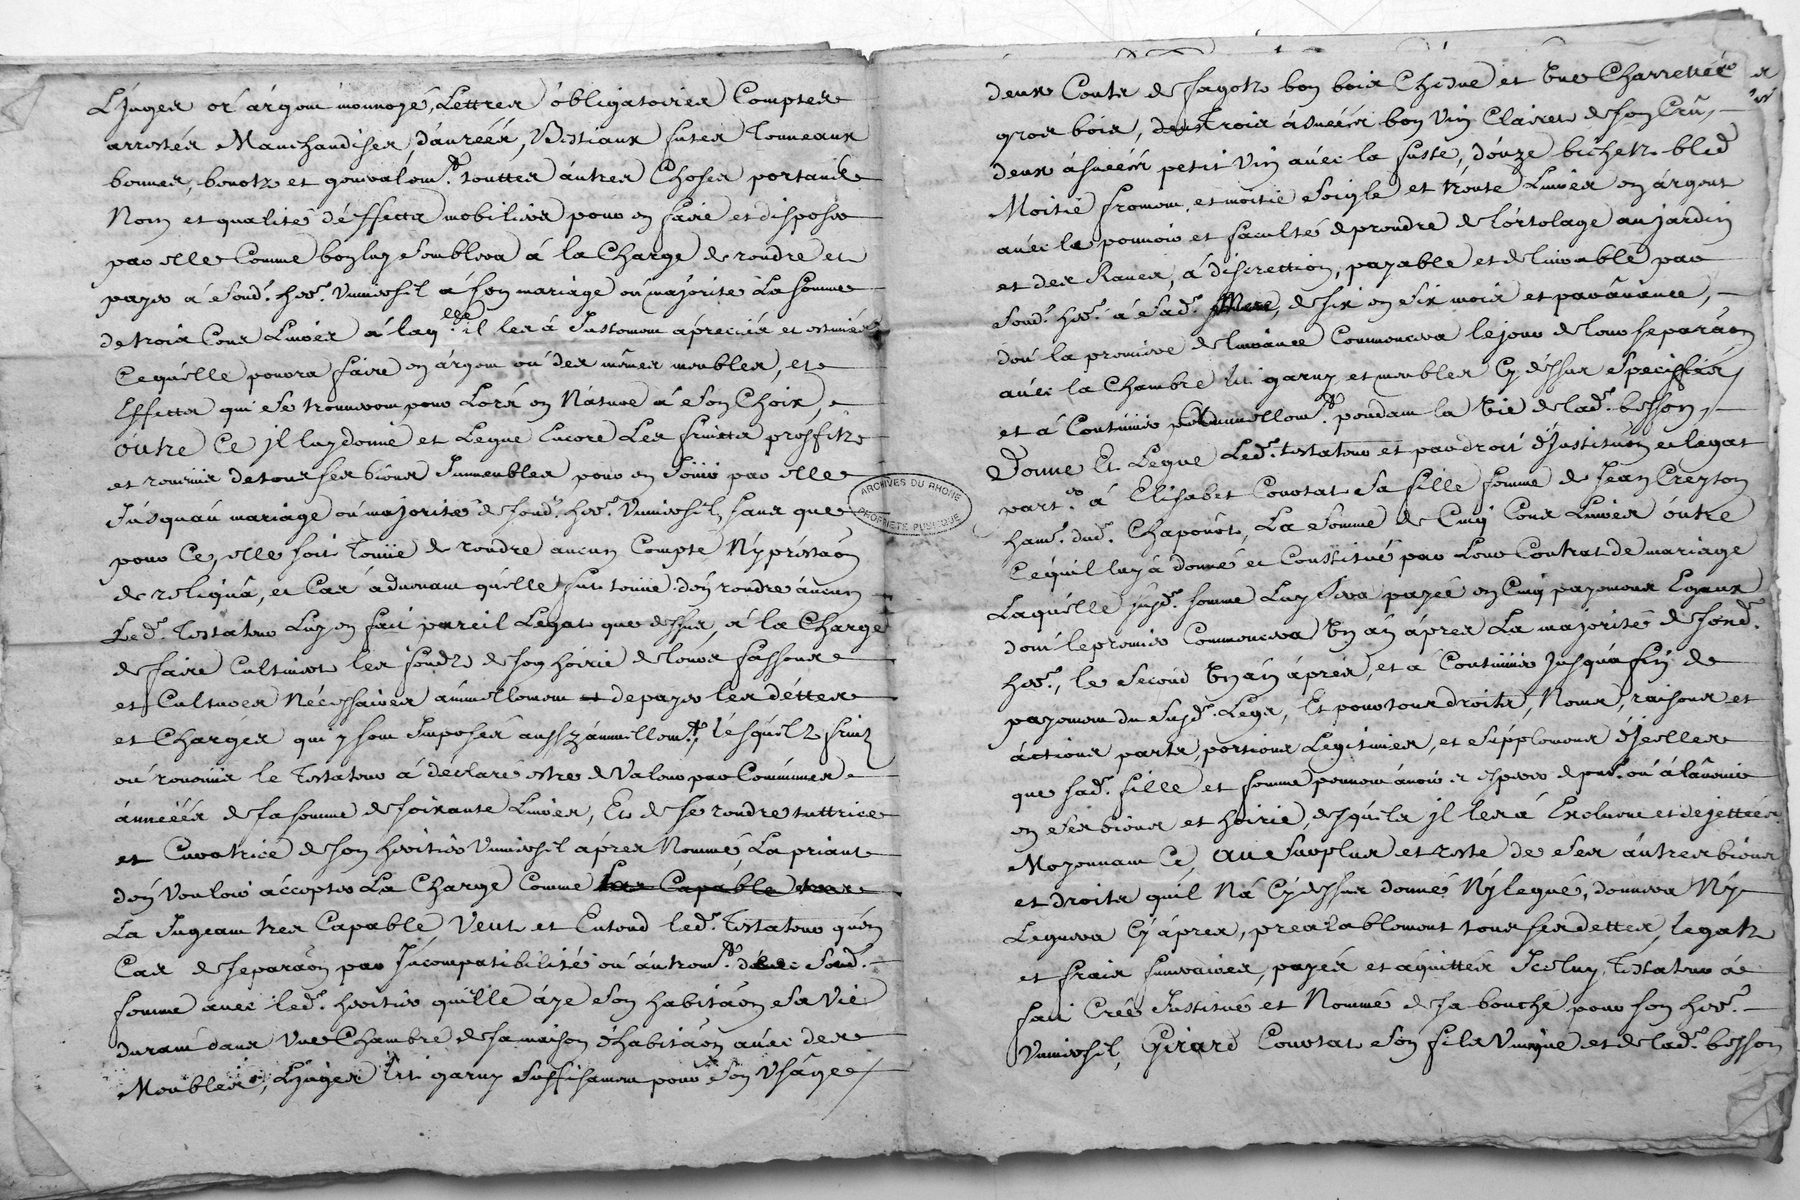 Linges or argent monnoyé, Lettres obligatoires Comptes
arrestés Marchandises, danrées, Bestiaux futes Tonneaux
bennes, benots et generalem.t touttes autres Choses portants
Nom et qualité d'effects mobiliers pour en faire et disposer
par elle Comme bon luy semblera à la Charge de rendre et
payer à sond. her. Universel à son mariage ou majorité La somme
de trois Cens Livres à laq.lle il les à Justement apreciés et estimés
Ce quelle pourra faire en argent ou des mêmes meubles, et
Effects qui se trouveront pour Lors en Nature à son Choix,
outre Ce jl luy donne et Legue Encore Les fruicts proffits
et revenus de tous ses biens Immeubles pour en Jouir par elle
Jusquau mariage ou majorité de sond. her. Universel, sans que
pour Ce, elle soit Tenüe de rendre aucun Compte Ny prestaon
de reliqua, et Cas advenant quelle fut tenüe den rendre aucun
Led. Testateur Luy en fait pareil Legat que dessus, à la Charge
de faire Cultiver les fonds de son hoirie de leurs fassons
et Cultures Nécessaires annuellement de payer les dettes
et Charges qui y sont Imposés aussy annuellem.t, lesquels fruits
ou revenus le Testateur à déclaré estre de Valeur par Communes
années de la somme de soixante Livres, Et de se rendre tuttrice
et Curatrice de son heritier Universel apres Nommé, La priant
d'en vouloir accepter La Charge Comme
La Jugeant tres Capable, Veut et Entend led. Testateur quen
Cas de separaon par Incompatibilité ou autrem.t sad.
femme avec led. heritier quelle aye son habitaon sa Vie
durant dans Une Chambre de sa maison d'habitaon avec des
Meubles, Linges Lit garny suffisament pour son Usage
deux Cents de fagots bon bois Chesne et Une Charretteé
gros bois, trois asneés bon Vin Clairet de son Crû,
deux asneés petit Vin avec la fuste, douze bichets bled
Moitié froment, et moitié soigle et trente Livres en argent
avec le pouvoir et faculté de prendre de lortolage au jardin
et des Raves, à discrettion, payable et delivrable par
sond. her. à sad. Mere, de six en six mois et par avance,
dont la premiere delivrance Commencera le jour de leur separaon
avec la Chambre lit garny et meubles Cy dessus specifiés
et à Continuer Annuellem.t pendant la Vie de lad. besson,
Donne Et Legue Led. testateur et par droit d'Institution et legat
part.er à Elisabet Coustat sa fille femme de Jean Creyton
ham. dud. Chaponost, La somme de Cinq Cens Livres outre
Ce quil luy à donné et Constitué par Leur Contrat de mariage
Laquelle susd. somme Luy sera payée en Cinq payemens Egaux
dont le premier Commencera Un an apres La majorité de sond.
her., le second Un an apres, et à Continuer Jusqua fin de
payement du susd. Legs, Et pour tous droits, Noms, raisons et
actions parts, portions Legitimes, et supplemens d'jcelles
que sad. fille et femme peuvent avoir et esperer de pnt. ou à lavenir
en ses biens et hoirie, desquels jl les à Exclu et dejettées
Moyennant Ce, Au surplus et reste de ses autres biens
et droits quil Nà Cy dessus donné Ny legué, donnera Ny
Leguera Cy apres, prealablement tous ses dettes, legats
et frais funeraires, payés et aquittés Iceluy Testateur à
fait Créé Institué et Nommé de sa bouche pour son her.
Universel, Girard Coustat son fils Unique et de lad. besson
ARCHIVES DU RHONE
PROPRIETE PUBLIQUE